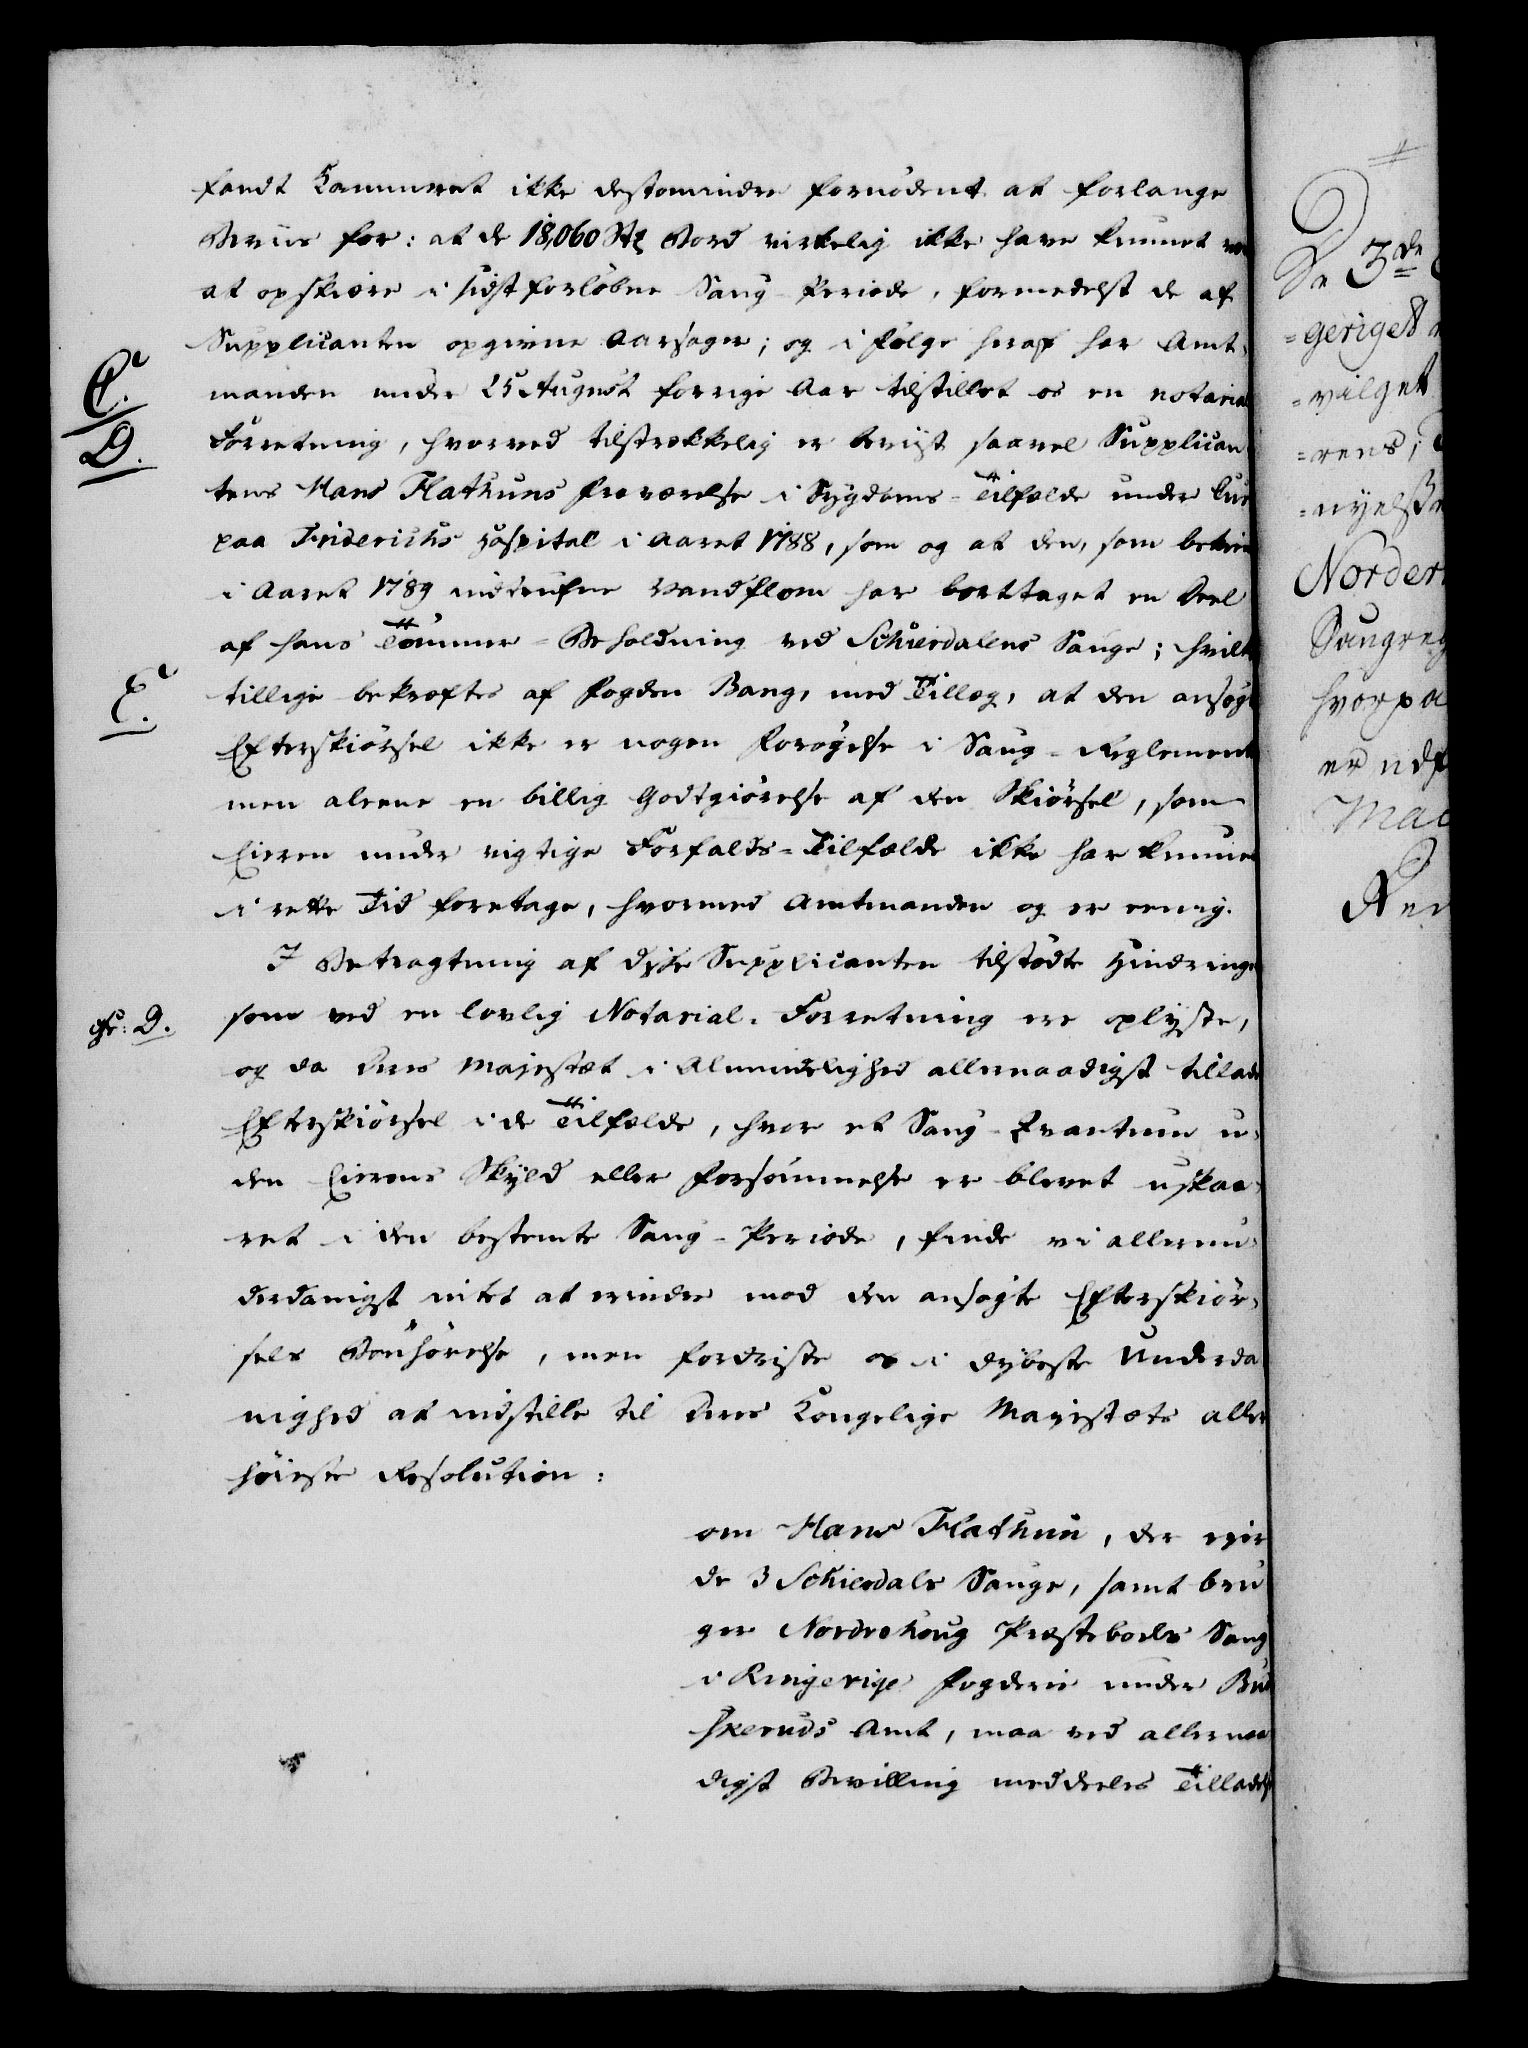 fandt Kammeret ikke destomindre fornødent at forlange
Beviis for: at de 18,060 Stk Bord virkelig ikke have kunnet
at opskiære i sidstforløbne Saug-Periode, formedelst de af
Supplicanten opgivne Aarsager; og i følge heraf har Amt-
C.
manden under 25 August forrige Aar tilstillet os en notarial
D.
Forretning, hvorved tilstrækkelig er beviist saavel Supplican
tens Hans Flathuns fraværelse i Sygdoms-Tilfælde under Cur
paa Friderichs Hospital i Aaret 1788, som og at den, som bekien
i Aaret 1789 indtrufne Vandflom har borttaget en Deel
af hans Tømmer-Beholdning ved Schierdalens Sauge; hvilke
E.
tillige bekræftes af fogden Bang, med Tillæg, at den ansøgt
Efterskiørsel ikke er nogen forøgelse i Saug-Reglement
men alene en billig Godtgiørelse af den Skiørsel, som
Eieren under vigtige Forfalds-Tilfælde ikke har kunnet
i rette Tid foretage, hvormed Amtmanden og er eenig.
I Betragtning af disse Supplicanten tilstødte Hindringe
cfr: D.
som ved en lovlig Notarial-Forretning ere oplyste,
og da Deres Majestæt i Almindelighed allernaadigst tillade
Efterskiørsel i de Tilfælde, hvor et Saug-Qvantum u-
den Eierens Skyld eller forsømmelse er blevet uskaa-
ret i den bestemte Saug-Periode, finde vi allerun-
derdanigst intet at erindre mod den ansøgte Efterskiør-
sels Bønhørelse, men fordriste os i dybeste Underda
nighed at indstille til Deres Kongelige Majestæts aller
høieste Resolution:
om Hans Flathun, der eier
de 3 Schierdals Sauge, samt bru
ger Nordrehoug Præsteboels Saug
i Ringerige fogderie under Bu
skeruds Amt, maa ved allernaa
digst Bevilling meddeeles Tilladels
De 3de
=geriges
=vilget
=rens;
=nyelse
Norder
Saugreg
hvorpa
er udf
Maa
Ren